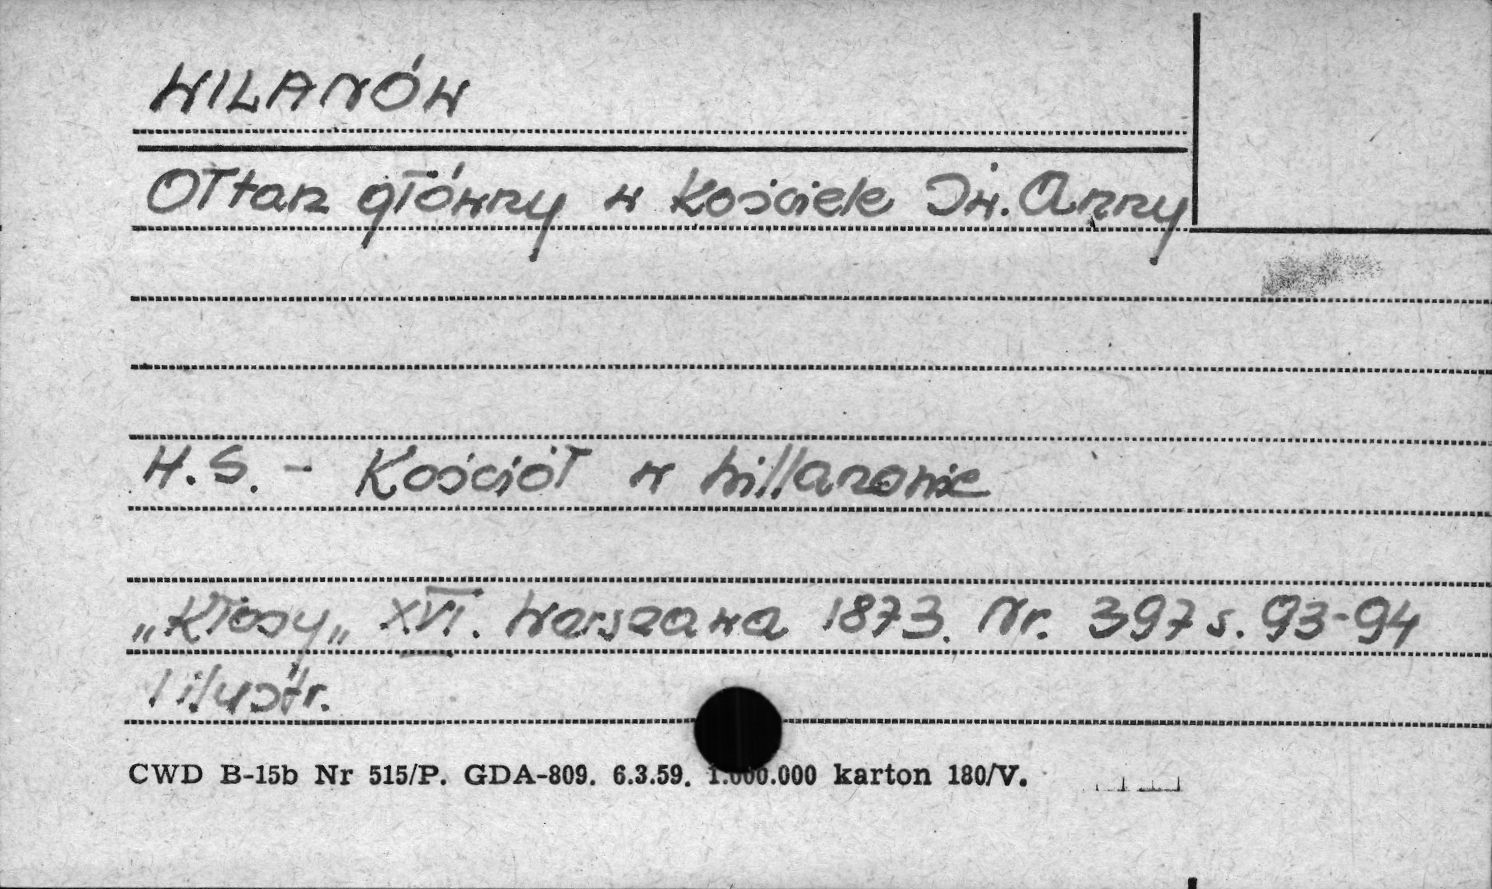 WILANÓW
Ołtarz główny w Kościele Św. Anny
H.S. - Kościół w Willanowie
„Kłosy„ XVI. Warszawa 1873. Nr. 397 s. 93-94
1 ilustr.
CWD B-15b Nr 515/P. GDA-809. 6.3.59. 1.000.000 karton 180/V.